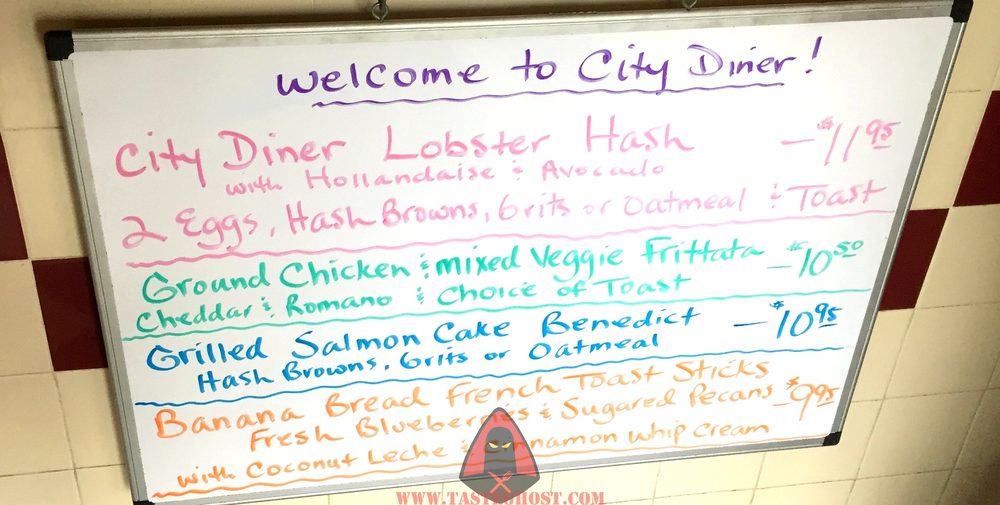 Welcome to City Diner!
City Diner Lobster Hash -$11 95
with Hollandaise & Avocado
2 Eggs, Hash Browns, Grits or Oatmeal & Toast
Ground Chicken & mixed Veggie Frittata -$10 50
Cheddar & Romano & Choice of Toast
Grilled Salmon Cake Benedict -$10 95
Hash Browns, Grits or Oatmeal
Banana Bread French Toast Sticks
Fresh Blueberries & Sugared Pecans -$9 95
with Coconut Leche & Cinnamon Whip Cream
WWW.TASTEGHOST.COM